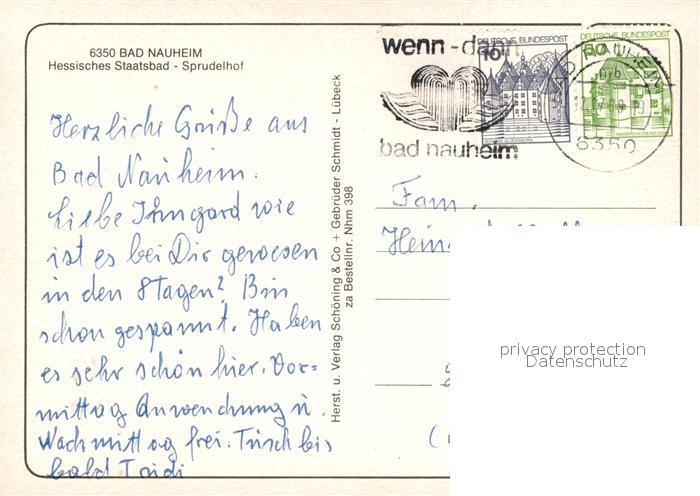 6350 BAD NAUHEIM
Hessisches Staatsbad - Sprudelhof
wenn-dann
bad nauheim
DEUTSCHE BUNDESPOST
10
DEUTSCHE BUNDESPOST
6350
Herzliche Grüße aus
Bad Nauheim.
Liebe Irmgard wie
ist es bei Dir gewesen
in den 8Tagen? Bin
schon gespannt. Haben
es sehr schön hier. Vor=
mittag Anwendung u.
Nachmittag frei. Tüsch bis
bald Trudi
Herst. u. Verlag Schöning & Co + Gebrüder Schmidt - Lübeck
za Bestellnr. Nhm 398
Fam.
privacy protection
Datenschutz